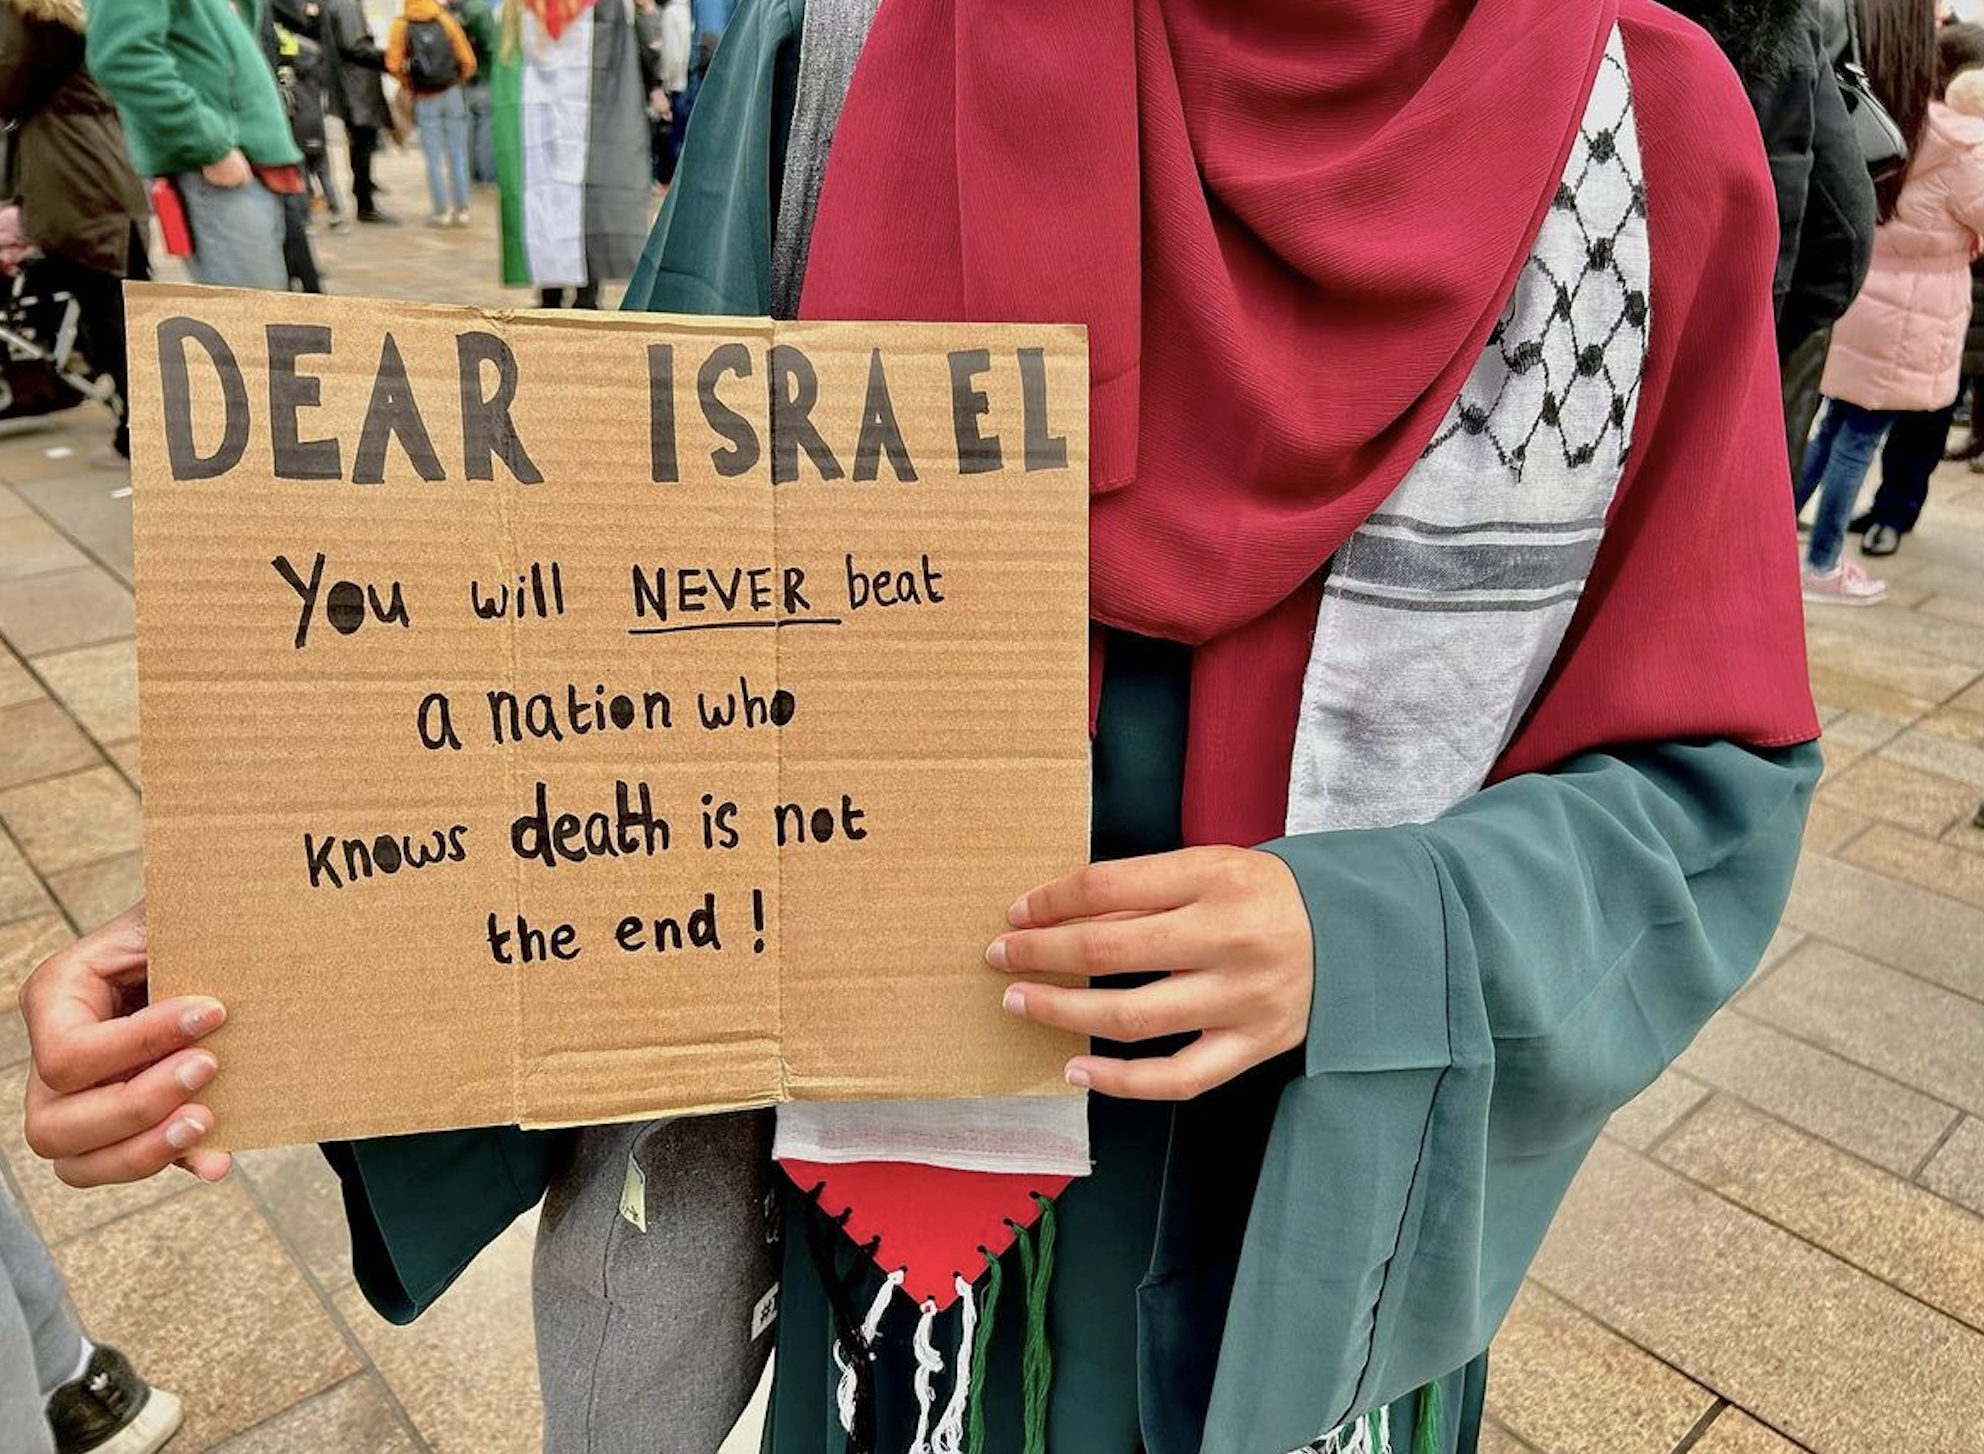 DEAR ISRAEL
You will NEVER beat
a nation who
knows death is not
the end !